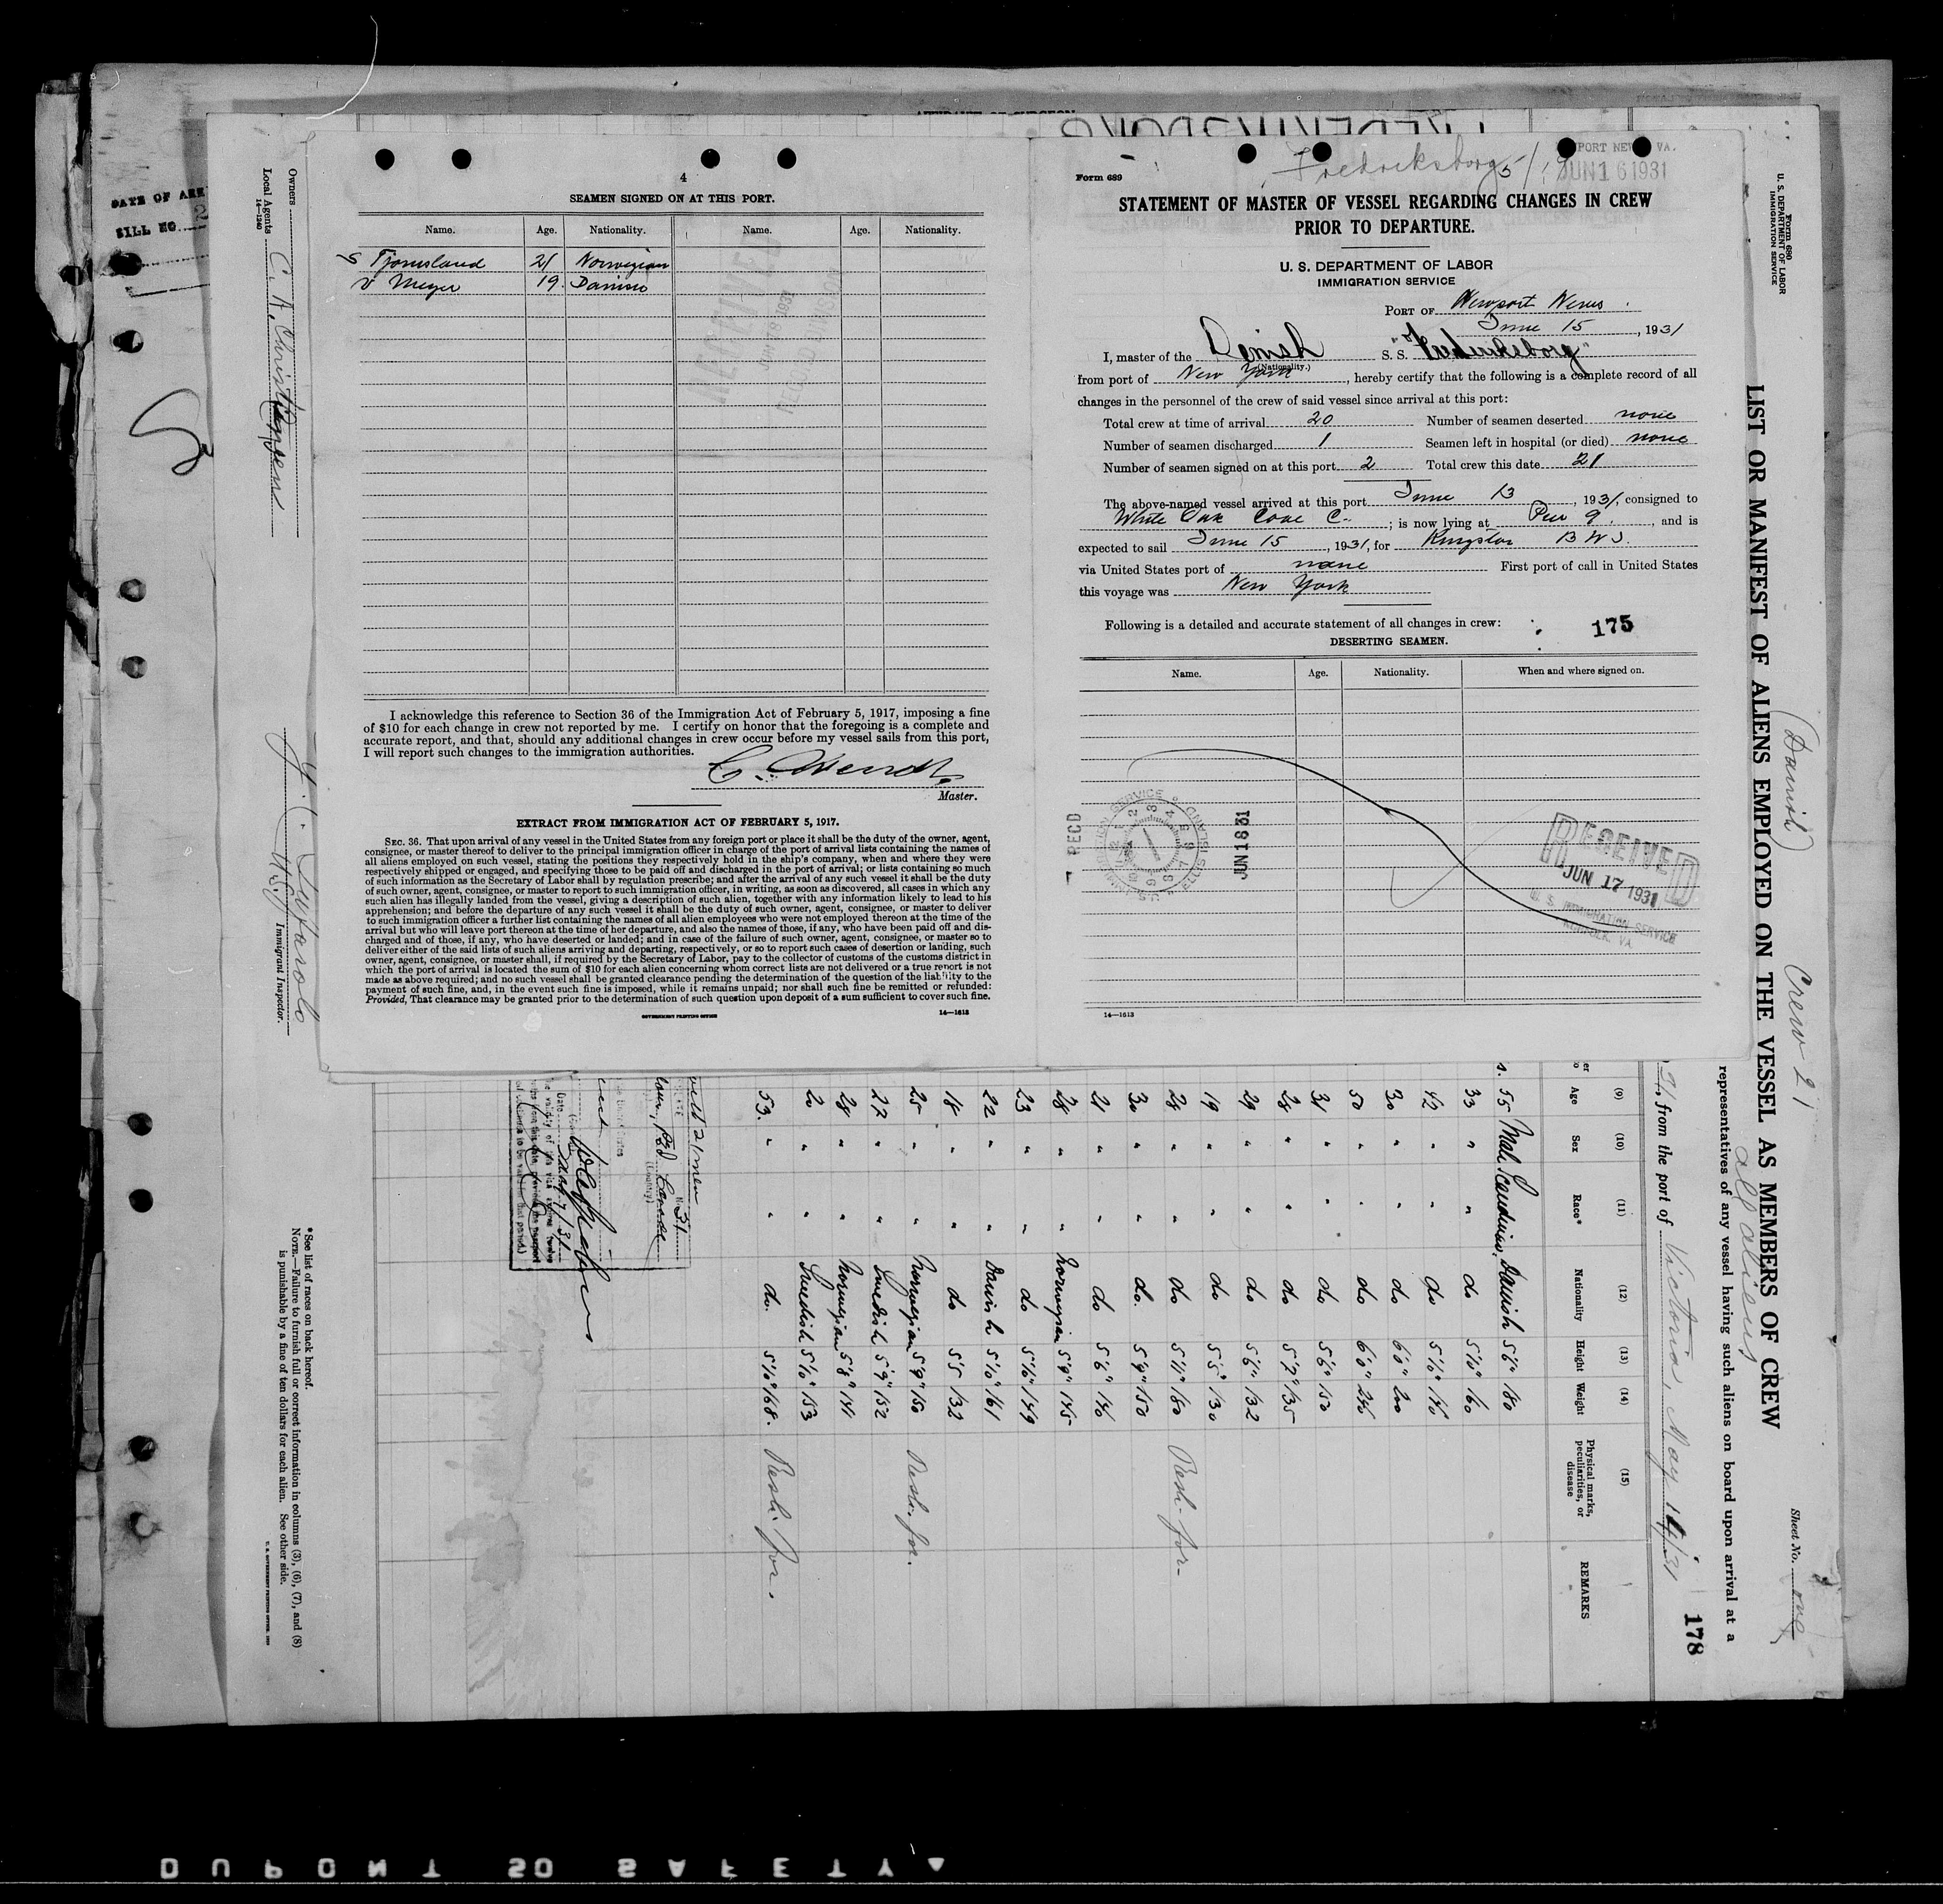 4
SEAMEN SIGNED ON AT THIS PORT.
Name. Age. Nationality. Name. Age. Nationality.
S Tjomsland 21 Norwegian
V Meyer 19 Danish
I acknowledge this reference to Section 36 of the Immigration Act of February 5, 1917, imposing a fine
of $10 for each change in crew not reported by me. I certify on honor that the foregoing is a complete and
accurate report, and that, should any additional changes in crew occur before my vessel sails from this port,
I will report such changes to the immigration authorities.
Master.
EXTRACT FROM IMMIGRATION ACT OF FEBRUARY 5, 1917.
SEC. 36. That upon arrival of any vessel in the United States from any foreign port or place it shall be the duty of the owner, agent,
consignee, or master thereof to deliver to the principal immigration officer in charge of the port of arrival lists containing the names of
all aliens employed on such vessel, stating the positions they respectively hold in the ship's company, when and where they were
respectively shipped or engaged, and specifying those to be paid off and discharged in the port of arrival; or lists containing so much
of such information as the Secretary of Labor shall by regulation prescribe; and after the arrival of any such vessel it shall be the duty
of such owner, agent, consignee, or master to report to such immigration officer, in writing, as soon as discovered, all cases in which any
such alien has illegally landed from the vessel, giving a description of such alien, together with any information likely to lead to his
apprehension; and before the departure of any such vessel it shall be the duty of such owner, agent, consignee, or master to deliver
to such immigration officer a further list containing the names of all alien employees who were not employed thereon at the time of the
arrival but who will leave port thereon at the time of her departure, and also the names of those, if any, who have been paid off and dis-
charged and of those, if any, who have deserted or landed; and in case of the failure of such owner, agent, consignee, or master so to
deliver either of the said lists of such aliens arriving and departing, respectively, or so to report such cases of desertion or landing, such
owner, agent, consignee, or master shall, if required by the Secretary of Labor, pay to the collector of customs of the customs district in
which the port of arrival is located the sum of $10 for each alien concerning whom correct lists are not delivered or a true report is not
made as above required; and no such vessel shall be granted clearance pending the determination of the question of the liability to the
payment of such fine, and, in the event such fine is imposed, while it remains unpaid; nor shall such fine be remitted or refunded:
Provided, That clearance may be granted prior to the determination of such question upon deposit of a sum sufficient to cover such fine.
GOVERNMENT PRINTING OFFICE 14—1613
Fredriksborg 5/
PORT NEW VA.
JUN 16 1931
Form 689
STATEMENT OF MASTER OF VESSEL REGARDING CHANGES IN CREW
PRIOR TO DEPARTURE.
U. S. DEPARTMENT OF LABOR
IMMIGRATION SERVICE
PORT OF Newport News
June 15, 1931
I, master of the Danish S. S. "Frederiksborg"
(Nationality.)
from port of New York, hereby certify that the following is a complete record of all
changes in the personnel of the crew of said vessel since arrival at this port:
Total crew at time of arrival 20 Number of seamen deserted none
Number of seamen discharged 1 Seamen left in hospital (or died) none
Number of seamen signed on at this port 2 Total crew this date 21
The above-named vessel arrived at this port June 13, 1931, consigned to
White Oak Coal C.; is now lying at Pier 9, and is
expected to sail June 15, 1931, for Kingston B W I.
via United States port of none First port of call in United States
this voyage was New York
Following is a detailed and accurate statement of all changes in crew: 175
DESERTING SEAMEN.
Name. Age. Nationality. When and where signed on.
REC'D
IMMIGRATION SERVICE ELLIS ISLAND
JUN 18 31
RECEIVED
JUN 17 1931
U. S. IMMIGRATION SERVICE
NORFOLK, VA.
14—1613
DATE OF ARR
BILL NO. 2
Owners
Local Agents C. A. Christiansen
14—1240
Immigrant Inspector.
*See list of races on back hereof.
NOTE.—Failure to furnish full or correct information in columns (3), (6), (7), and (8)
is punishable by a fine of ten dollars for each alien. See other side.
Form 680
U. S. DEPARTMENT OF LABOR
IMMIGRATION SERVICE
(Danish) Crew 21
Sheet No. one
LIST OR MANIFEST OF ALIENS EMPLOYED ON THE VESSEL AS MEMBERS OF CREW
all aliens
representatives of any vessel having such aliens on board upon arrival at a
from the port of Victoria, May 14/31
178
(9) (10) (11) (12) (13) (14) (15)
Age Sex Race* Nationality Height Weight Physical marks, peculiarities, or disease REMARKS
55 Male Scandinav. Danish 5'6" 180
33 " " do 5'10" 160
42 " " do 5'10" 146
30 " " do 6'0" 200
50 " " do 6'0" 246
31 " " do 5'6" 150
28 " " do 5'7" 135
29 " " do 5'6" 132
19 " " do 5'5" 130
28 " " do 5'11" 160
30 " " do. 5'9" 150
21 " " do 5'6" 146
28 " " Norwegian 5'9" 145
23 " " do 5'10" 149
22 " " Danish 5'10" 161
18 " " do 5'5 132
25 " " Norwegian 5'9" 150
27 " " Swedish 5'9" 152
28 " " Norwegian 5'8" 141
20 " " Swedish 5'10" 153
53. " " do. 5'10" 168.
DUPONT SAFETY